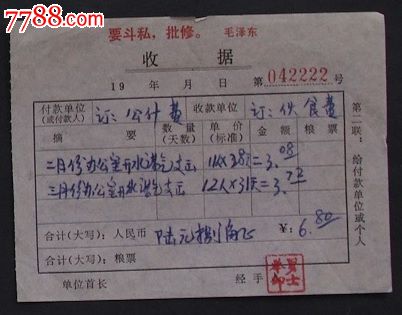 7788.com
要斗私，批修。 毛泽东
收 据
19 年 月 日 第 042222 号
付款单位
(或付款人)
订：公什费
收款单位
订：伙食费
摘 要
数量
(天数)
单价
(标准)
金额
粮票
二月份办公室开水煤气支出 11人×28天=3.08
三月份办公室开水煤气支出 12人×31天=3.72
合计(大写)：人民币 陆元捌角正 ¥：6.80
合计(大写)：粮票
单位首长 经手
第二联：给付款单位或个人